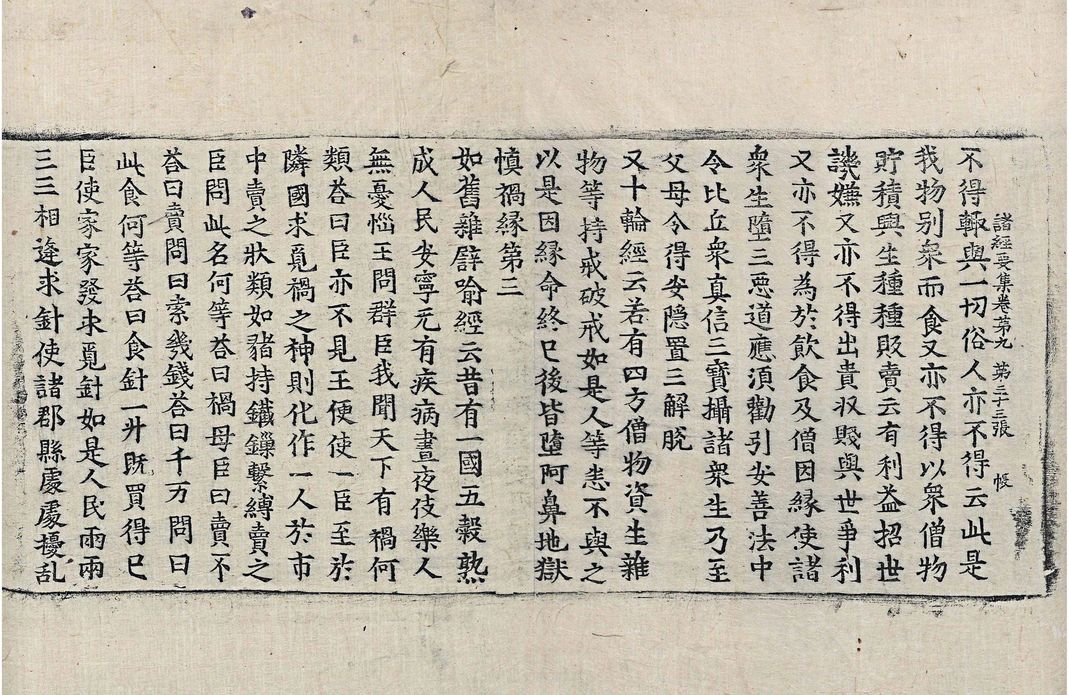 諸經要集卷第九 第二十三張 帳
不得輙與一切俗人亦不得云此是
我物別衆而食又亦不得以衆僧物
貯積興生種種販賣云有利益招世
譏嫌又亦不得出貴収賤與世爭利
又亦不得為於飲食及僧因縁使諸
衆生墮三惡道應湏勸引安善法中
令比丘衆真信三寶攝諸衆生乃至
父母令得安隱置三解脫
又十輪經云若有四方僧物資生雜
物等持戒破戒如是人等恚不與之
以是因縁命終已後皆墮阿鼻地獄
慎禍縁第三
如舊雜譬喻經云昔有一國五穀熟
成人民安寧无有疾病晝夜伎樂人
無憂惱王問群臣我聞天下有禍何
類荅曰臣亦不見王便使一臣至於
隣國求覓禍之神則化作一人於市
中賣之狀類如豬持鐵鏁繫縛賣之
臣問此名何等荅曰禍母臣曰賣不
荅曰賣問曰索幾錢荅曰千万問曰
此食何等荅曰食針一升既買得已
臣使家家發求覓針如是人民兩兩
三三相逄求針使諸郡縣處處擾乱